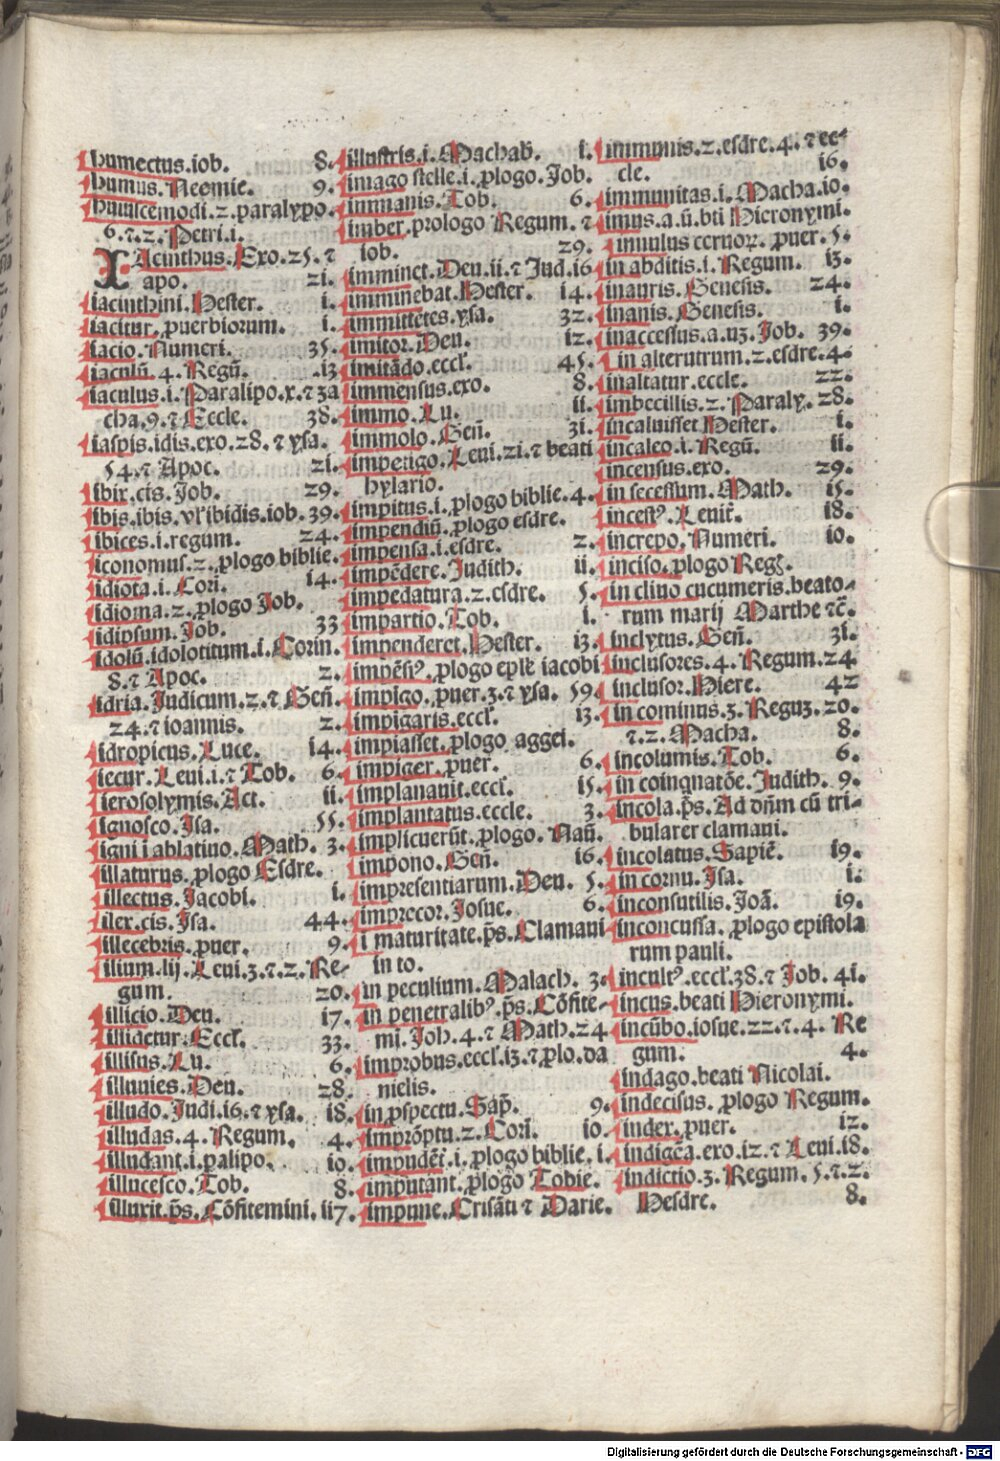 humectus.iob. 8.
humus. Neemie. 9.
huiuscemodi.2.paralypo.
6.⁊.2. Petri.i.
IAcinthus. Exo.25.⁊
apo. 21.
iacinthini. Hester. i.
iacitur. ꝓuerbiorum. i.
iacio. Numeri. 35.
iaculū. 4. Regū. .13
iaculus.i. Paralipo.x.⁊ za
cha.9.⁊ Eccle. 38.
iaspis.idis.exo.28.⁊ ysa.
54.⁊ Apoc. 21.
ibix.cis. Job. 29.
ibis.ibis. vl' ibidis.iob.39.
ibices.i.regum. 24.
iconomus.2. ꝓlogo biblie.
idiota.i. Cori. 14.
idioma.2. ꝓlogo Job.
idipsum. Job. 33
idolū.idolotitum.i. Corin.
8.⁊ Apoc. 2.
idria. Judicum.2.⁊ Geñ.
24.⁊ ioannis. 2.
idropicus. Luce. 14.
iecur. Leui.i.⁊ Tob. 6.
ierosolymis. Act. ii.
ignosco. Jsa. 55.
igni i ablatiuo. Math. 3.
illaturus. ꝓlogo Esdre.
illectus. Jacobi. i.
ilex.cis. Jsa. 44.
illecebris. ꝓuer. 9.
ilium.lij. Leui.3.⁊.2. Re-
gum. 20.
illicio. Deu. 17.
illidetur. Eccl'. 33.
illisus. Lu. 6.
illuuies. Deu. 28
illudo. Judi.16.⁊ ysa. 18.
illudas. 4. Regum. 4.
illudant.i.palipo. 10.
illucesco. Tob. 8.
illuxit. ps̄. Cōfitemini. ii7.
illustris.i. Machab. i.
imago stelle.i. ꝓlogo. Job.
immanis. Tob. 6.
imber. prologo Regum. ⁊
iob. 29.
imminet. Deu. ii.⁊ Jud.16
imminebat. Hester. 14.
immittētes. ysa. 32.
imitor. Deu. 12.
imitādo.eccl'. 45.
immensus.exo. 8.
immo. Lu. ii.
immolo. Geñ. 31.
impetigo. Leui.21.⁊ beati
hylario.
impitus.i. ꝓlogo biblie.4.
impendiū. ꝓlogo esdre.
impensa.i.esdre. 2.
impēdere. Judith. ii.
impedatura.2.esdre. 5.
impartio. Tob. i.
impenderet. Hester. 13.
impēsiꝰ. ꝓlogo ep̄le iacobi
impigo. ꝓuer.3.⁊ ysa. 59
impigaris.eccl'. 13.
impiasset. ꝓlogo aggei.
impiger. ꝓuer. 6.
implanauit.eccl'. 15.
implantatus.eccle. 3.
implicuerūt. ꝓlogo. Naū.
impono. Geñ. 16.
impresentiarum. Deu. 5.
imprecor. Josue. 6.
i maturitate. ps̄. Clamaui
in to.
in peculium. Malach. 3.
in penetralibꝰ. ps̄. Cōfite-
mi. Job.4.⁊ Math.24
improbus.eccl'.13.⁊ ꝓlo.da
nielis.
in ꝓspectu. Sap̄. 9.
imprōptu.2. Cori. 10.
impudēt'.i. ꝓlogo biblie. i.
imputant. ꝓlogo Tobie.
impune. Crisāti ⁊ Darie.
immunis.2.esdre.4.⁊ ec-
cle. 16.
immunitas.i. Macha.10.
imus.a.ū.bti Hieronymi.
inuulus ceruoꝝ. ꝓuer. 5.
in abditis.i. Regum. 13.
inauris. Genesis. 24.
inanis. Genesis. i.
inaccessus.a.uz. Job. 39.
in alterutrum.2.esdre.4.
inaltatur.eccle. 22.
imbecillis.2. Paraly. 28.
incaluisset Hester. i.
incaleo.i. Regū. ii.
incensus.exo. 29.
in secessum. Math. 15.
incestꝰ. Leuit'. 18.
increpo. Numeri. 10.
inciso. ꝓlogo Reg.
in cliuo cucumeris.beato-
rum marij Marthe ⁊c̄.
inclytus. Geñ. 31.
inclusores.4. Regum.24
inclusor. Hiere. 42
in cominus.3. Reguz.20.
⁊.2. Macha. 8.
incolumis. Tob. 6.
in coinquatōe. Judith. 9.
incola. ps̄. Ad dñm cū tri-
bularer clamaui.
incolatus. Sapiē. 19.
in cornu. Jsa. i.
inconsutilis. Joā. 19.
inconcussa. ꝓlogo epistola
rum pauli.
incultꝰ.eccl'.38.⁊ Job. 41.
incus.beati Hieronymi.
incūbo.iosue.22.⁊.4. Re
gum. 4.
indago.beati Nicolai.
indecisus. ꝓlogo Regum.
index. ꝓuer. 12.
indigēa.exo.12.⁊ Leui.18.
indictio.3. Regum. 5.⁊.2.
Hesdre. 8.
Digitalisierung gefördert durch die Deutsche Forschungsgemeinschaft - DFG